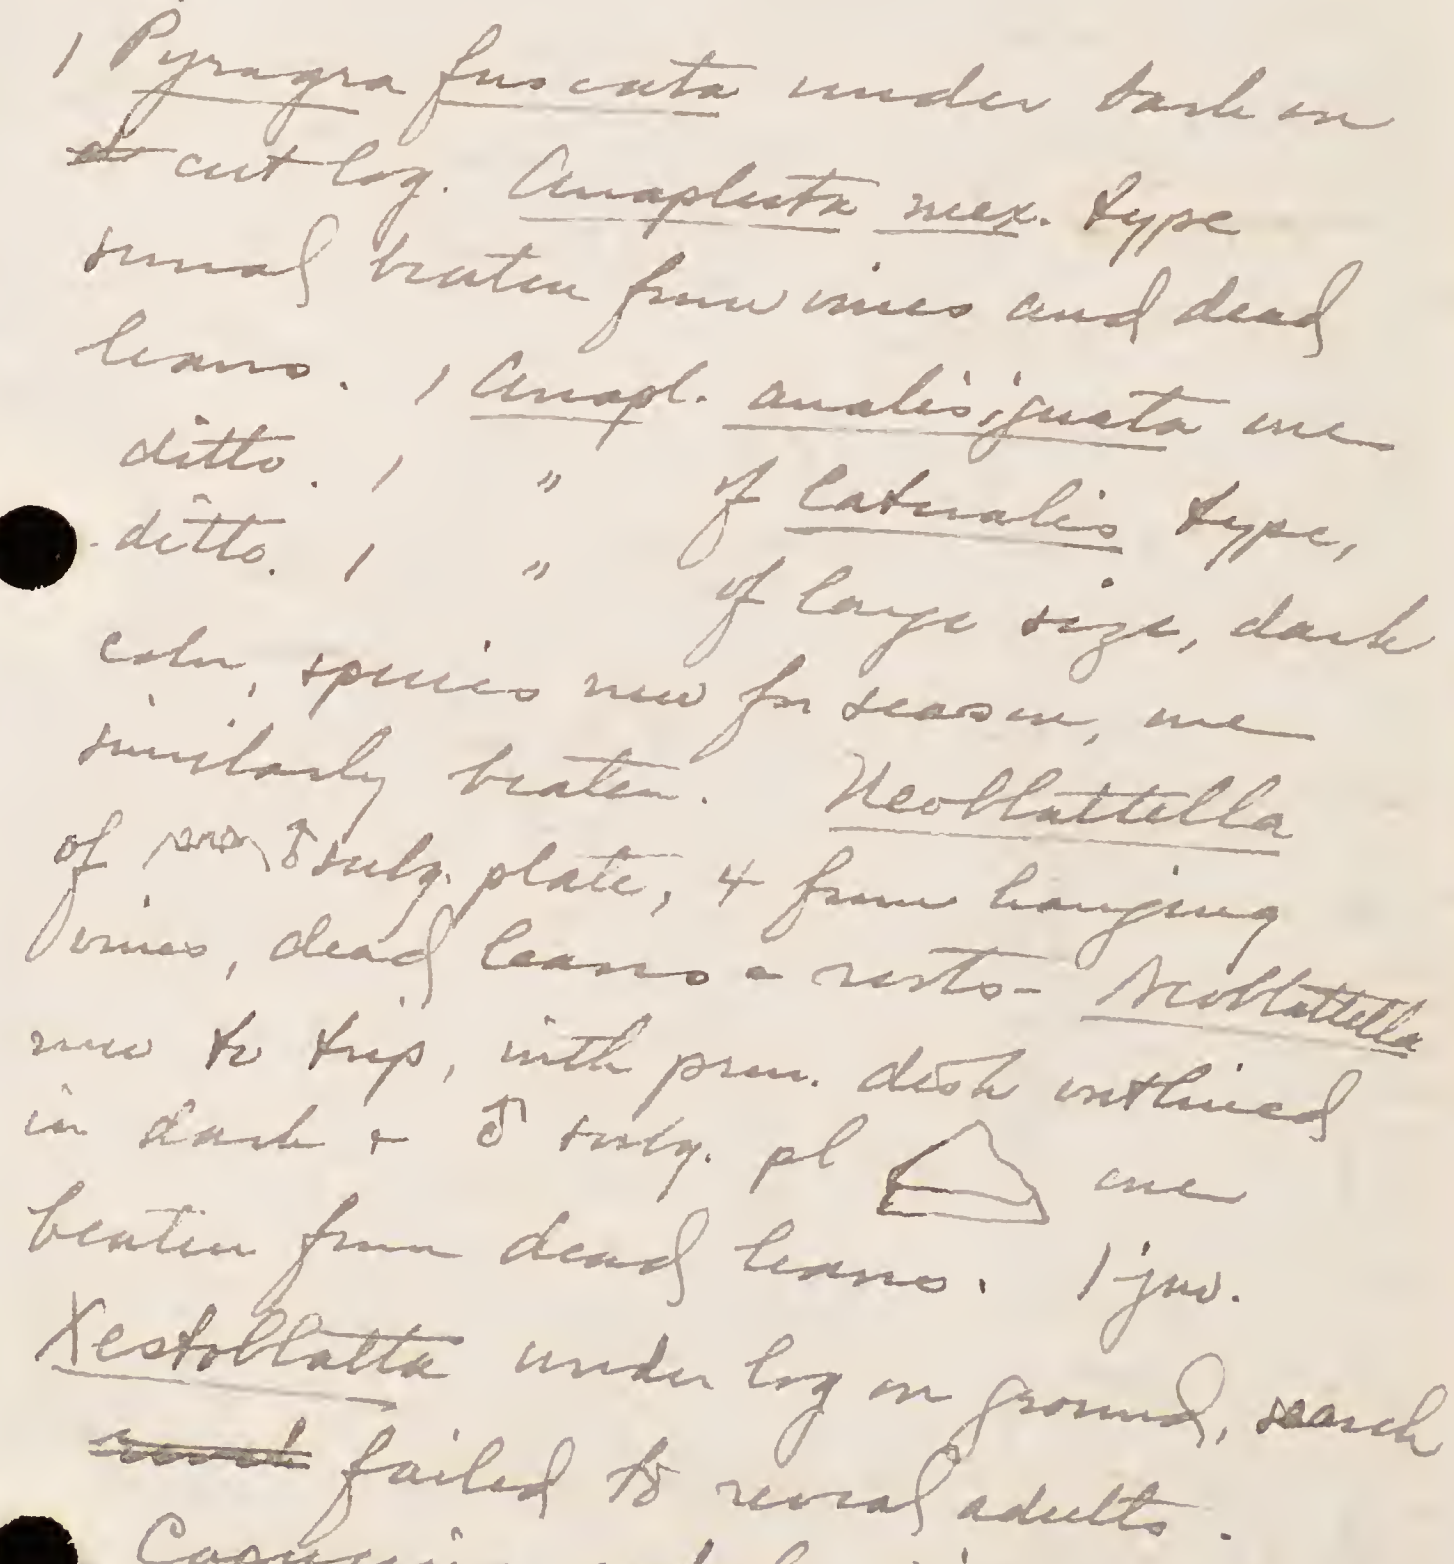 1 Pyragra fuscata under bark on
cut log. Anaplecta mex. type
several beaten from vines and dead
leaves. 1 Anapl. analisignata one
ditto. 1 " of lateralis type,
ditto. 1 " of large size, dark
color, species new for season, one
similarly beaten. Neoblattella
of ♂ subg. plate, 4 from hanging
vines, dead leaves & rests- Neoblattella
new to trip, with pron. disk outlined
in dark & ♂ subg. pl one
beaten from dead leaves. 1 juv.
Xestoblatta under log on ground, search
failed to reveal adults.